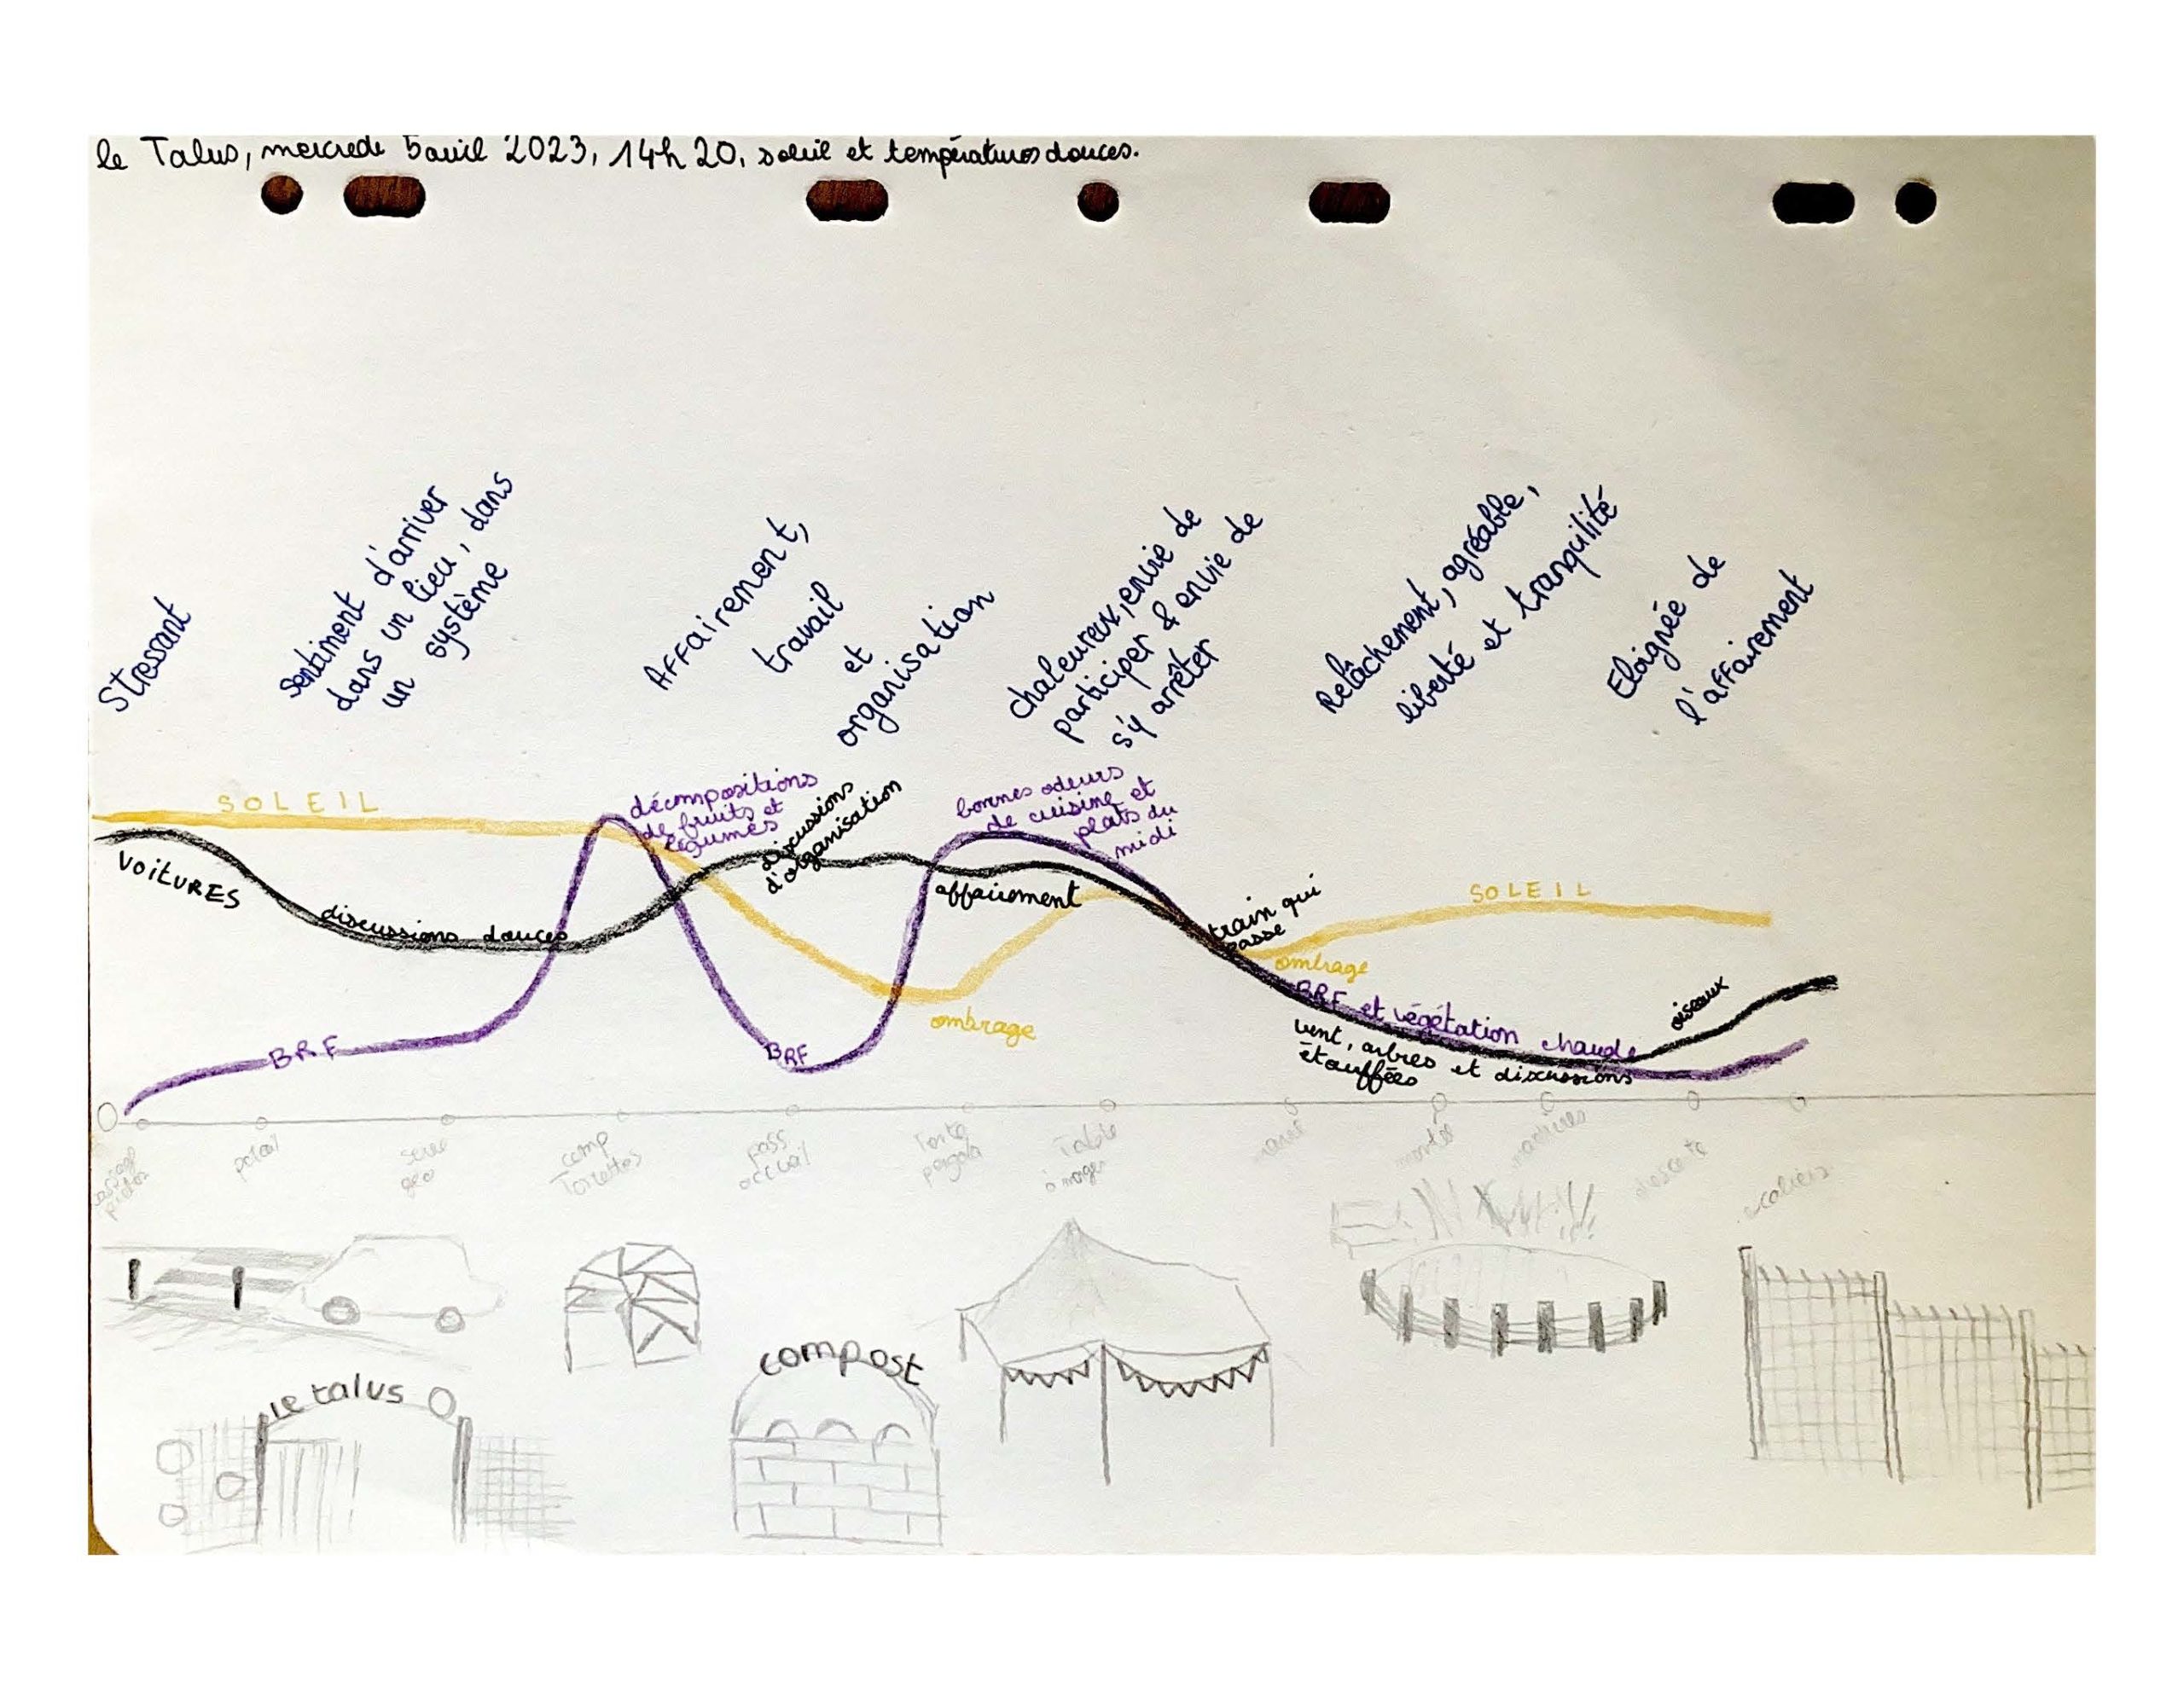 le Talus, mercredi 5 avril 2023, 14h 20, soleil et températures douces.
Stressant
sentiment d'arriver
dans un lieu, dans
un système
Affairement,
travail
et
organisation
chaleureux, envie de
participer & envie de
s'y arrêter
Relâchement, agréable,
liberté et tranquilité
Eloignée de
l'affairement
SOLEIL
VOITURES
discussions douces
BRF
décompositions
de fruits et
légumes
discussions
d'organisation
BRF
bonnes odeurs
de cuisine et
plats du
midi
affairement
ombrage
train qui
passe
SOLEIL
ombrage
BRF et végétation chaude
vent, arbres et discussions
étouffées
oiseaux
serre
géo
comp
Toilettes
pass
accueil
Tente
pergola
Table
à manger
montée
descente
escaliers
le talus
compost